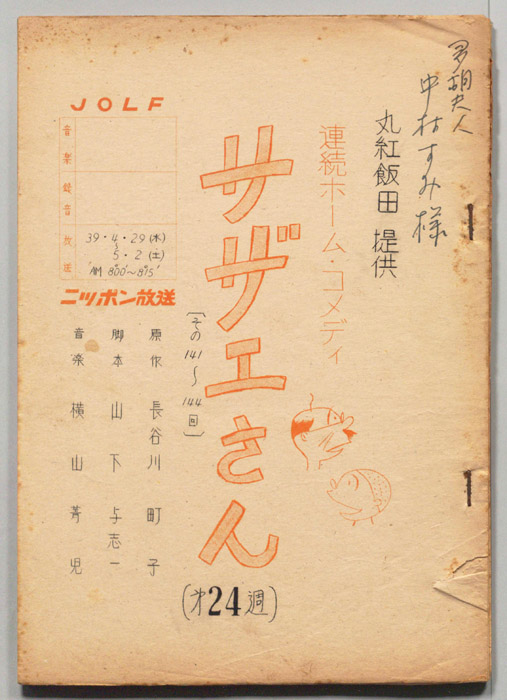 夫人
中村すみ様
丸紅飯田 提供
連続ホーム・コメディ
サザエさん
(第24週)
[その141〜144回]
JOLF
音楽
録音
放送
39・4・29(水)
〜
5・2(土)
AM 8°00'〜8°15'
ニッポン放送
原作 長谷川町子
脚本 山下与志一
音楽 横山菁児